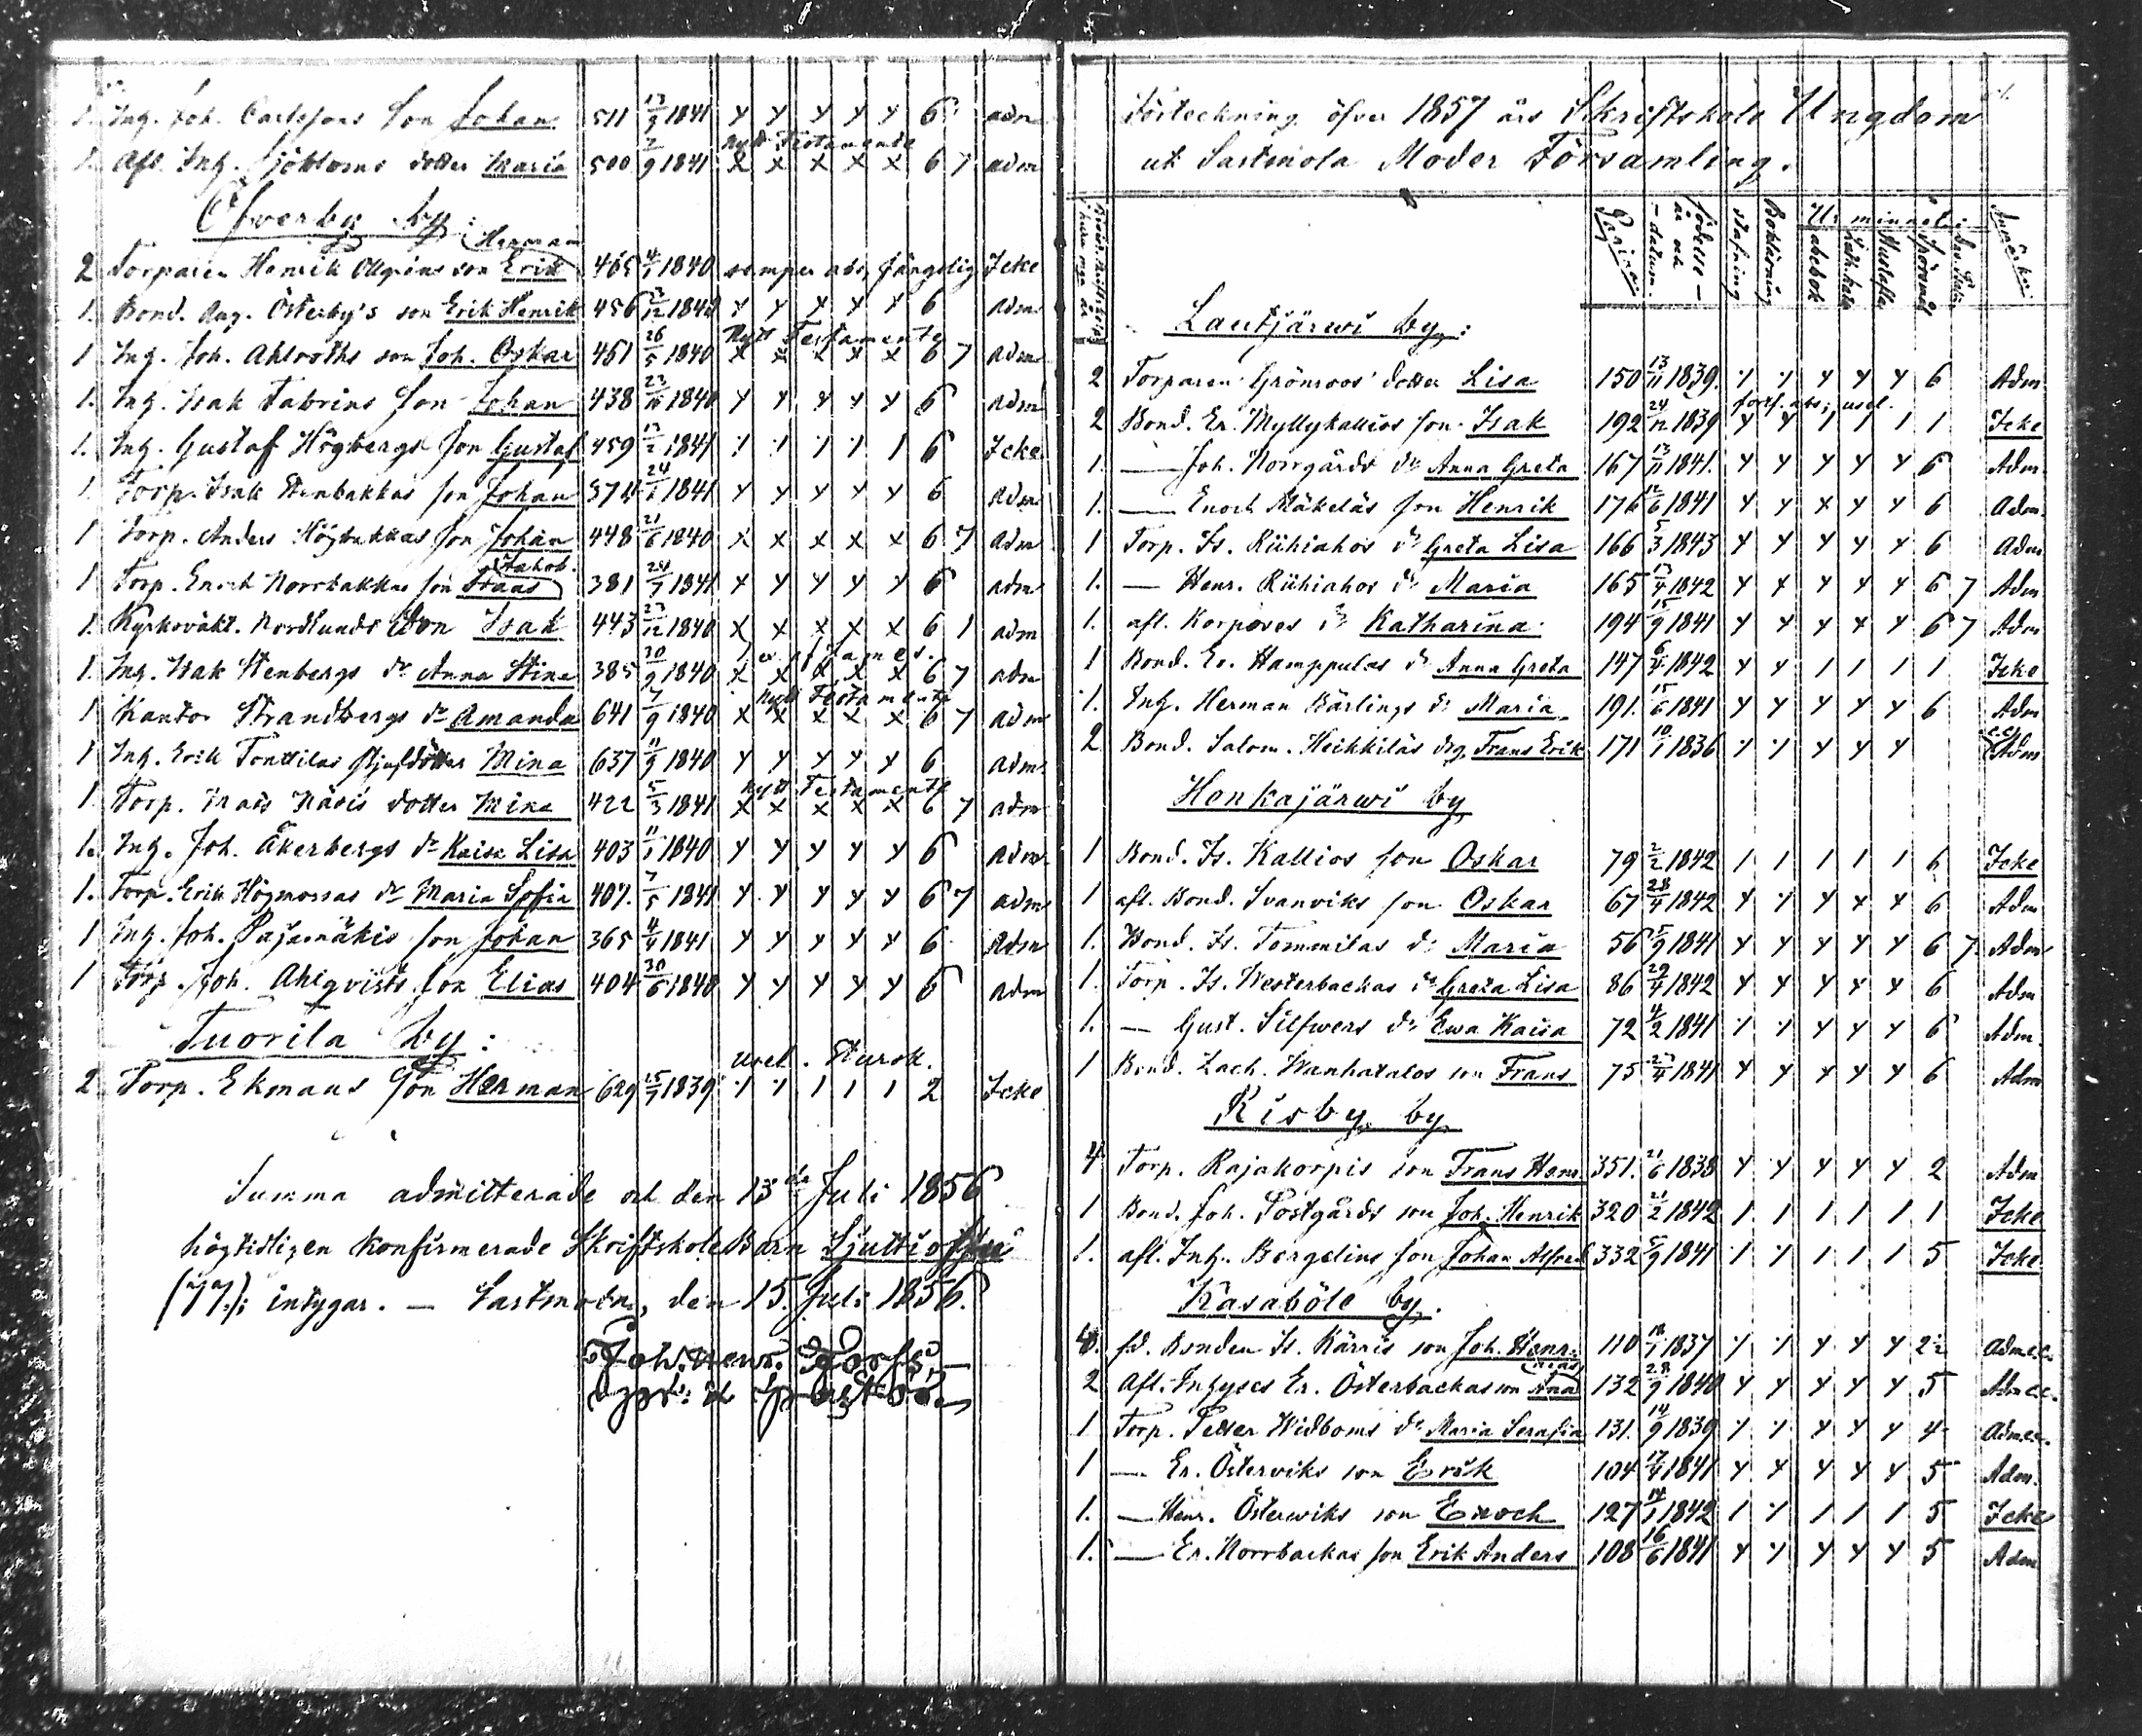 1. Inh. Joh. Carlssons Son Johan 511 13/9 1841 y y y y y 6 adm
Nytt Testamente
1. Afl. Inh. Sjöbloms dotter Maria 500 7/9 1841 x x x x x 6 7 adm
Öfverby by:
Herman
2 Torparen Henrik Ollqvins son Erik 465 4/1 1840 semper abs, fängslig Icke
1. Bond. Aug. Österby's son Erik Henrik 456 23/12 1840 y y y y y 6 adm
Nytt Testamente
1 Inh. Joh. Ahlrooths son Joh. Oskar 451 26/5 1840 x x x x x 6 7 adm
1. Inh. Isak Fabrins Son Johan 438 23/10 1840 y y y y y 6 adm
1. Inh. Gustaf Högbergs Son Gustaf 459 13/2 1841 1 1 1 1 1 6 Icke
1. Torp. Isak Stenbakkas son Johan 374 24/1 1841 y y y y y 6 adm
1 Torp. Anders Högbakkas Son Johan 448 21/6 1840 x x x x x 6 7 adm
Jakob.
1 Torp. Enoch Norrbakkas son Staas 381 24/7 1841 y y y y y 6 adm
1. Kyrkovakt. Nordlunds Son Isak 443 27/12 1840 x x x x x 6 1 adm
1. Inh. Isak Stenbergs dr Anna Stina 385 30/9 1840 x x x x x 6 7 adm
Nytt Testamente
1 Kantor Strandbergs dr Amanda 641 7/9 1840 x x x x x 6 7 adm
1 Inh. Erik Tonttilas stjufdotter Mina 637 11/9 1840 y y y y y 6 adm.
Nytt Testamente
1. Torp. Mats Näsis dotter Mina 422 5/3 1841 x x x x x 6 7 adm
1. Inh. Joh. Åkerbergs dr Kaisa Lisa 403 11/1 1840 y y y y y 6 adm
1. Torp. Erik Högmossas dr Maria Sofia 407. 7/5 1841 y y y y y 6 7 adm
1 Inh. Joh. Pajamäkis son Johan 365 4/4 1841 y y y y y 6 adm
1 Torp. Joh. Ahlqvists son Elias 404 30/6 1840 y y y y y 6 adm
Tuorila by:
usel. Stursk.
2. Torp. Ekmans Son Herman 629 15/7 1839 1 1 1 1 1 2 Icke
Summa admitterade och den 13de Juli 1856
högtidligen konfirmerade Skriftskole Barn Sjuttiosju
(77.); intygar. — Sastmola, den 15. Juli 1856.
Joh. Henr. Forss,
Förteckning öfver 1857 års Skriftskole Ungdom
ut Sastmola Moder Församling.
Pagina
födelse-
år och
-datum.
Stafning
Bokläsning
Ur minnet:
abcbok
Luth. kat.
Hustafla
Spörsmål
Anmärkn.
Lautjärwi by:
2 Torparen Grönroos' dotter Lisa 150 13/11 1839. 1 1 y y y 6 Adm
fortf. abs; usel.
2 Bond. Er. Myllykallios son Isak 192 24/12 1839 y y 1 1 1 1 Icke
1. — Joh. Norrgårds dr Anna Greta 167 13/11 1841. y y y y y 6 Adm
1. — Enoch Mäkeläs son Henrik 176 12/6 1841 y y x y y 6 Adm.
1 Torp. Is. Riihiahos dr Greta Lisa 166 5/3 1843 y y y y y 6 Adm
1. — Henr. Riihiahos dr Maria 165 13/4 1842 y y y y y 6 7 Adm
1. afl. Korpoves dr Katharina 194 15/9 1841 y y y y y 6 7 Adm
1 Bond. Er. Hamppulas dr Anna Greta 147 6/4 1842 y y 1 1 1 1 Icke
1. Inh. Herman Bärlings dr Maria 191. 15/6 1841 y y y y y 6 Adm
2 Bond. Salom. Heikkiläs drg Frans Erik 171 10/1 1836 1 1 y y y Adm
Honkajärwi by
1 Bond. Is. Kallios son Oskar 79 2/2 1842 1 1 1 1 1 6 Icke
1 afl. Bond. Svanviks son Oskar 67 28/4 1842 y y y y y 6 Adm
1. Bond. Is. Tommilas dr Maria 56 5/9 1841 y y y y y 6 7 Adm
1. Torp. Is. Westerbackas dr Greta Lisa 86 29/4 1842 y y y y y 6 Adm
1. — Gust. Silfwers dr Ewa Kaisa 72 4/2 1841 1 1 y y y 6 Adm
1 Bond. Zach. Wanhatalos son Frans 75 27/4 1841 y y y y y 6 Adm
Risby by
4 Torp. Rajakorpis son Frans Henr. 351. 21/6 1838 y y y y y 2 Adm
1 Bond. Joh. Postgårds son Joh. Henrik 320 21/2 1842 1 1 1 1 1 1 Icke
1. afl. Inh. Bergelins son Johan Alfred 332 5/9 1841 1 1 1 1 1 5 Icke
Kasaböle by.
4. fd. Bonden Is. Kärris son Joh. Henr. 110 18/1 1837 1 1 y y y 2½ Adm cc.
2 Afl. Inhyses Er. Österbackas son 132 28/9 1840 y y y y y 5 Adm cc.
1 Torp. Petter Widboms dr Maria Serafia 131. 14/9 1839 1 1 y y y 4 Adm cc.
1 — Er. Österviks son Erik 104 17/4 1841 y y y y y 5 Adm.
1. — Henr. Österwiks son Enoch 127 14/1 1842 1 1 1 1 1 5 Icke
1. — Er. Norrbackas son Erik Anders 108 16/6 1841 y y y y y 5 Adm